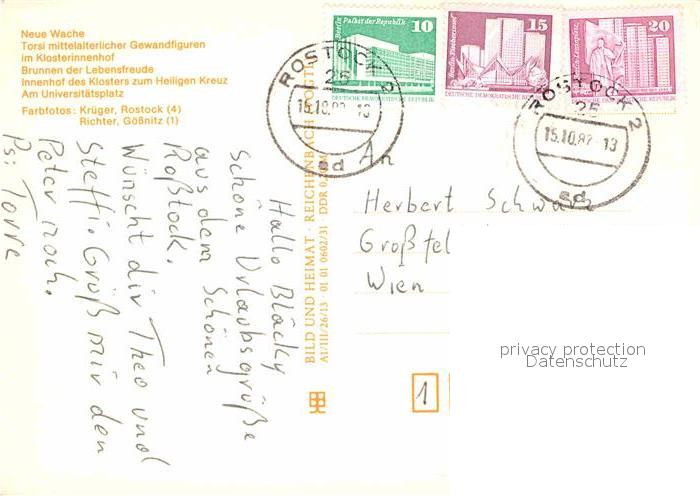 Neue Wache
Torsi mittelalterlicher Gewandfiguren
im Klosterinnenhof
Brunnen der Lebensfreude
Innenhof des Klosters zum Heiligen Kreuz
Am Universitätsplatz
Farbfotos: Krüger, Rostock (4)
Richter, Gößnitz (1)
Hallo Bläcky
Schöne Urlaubsgrüße
aus dem Schönen
Roßtock.
Wünscht dir Theo und
Steffi. Grüß mir den
Peter noch.
Ps: Torre
BILD UND HEIMAT · REICHENBACH
A1/III/26/13 · 01 01 0602/31 · DDR
Berlin Palast der Republik
10
DEUTSCHE DEMOKRATISCHE REPUBLIK
15
DEUTSCHE DEMOKRATISCHE REPUBLIK
20
DEUTSCHE DEMOKRATISCHE REPUBLIK
ROSTOCK 2
25
15.10.82-13
sd
ROSTOCK 2
25
15.10.82-13
sd
An
Herbert Schwarz
Großfel
Wien
1
privacy protection
Datenschutz